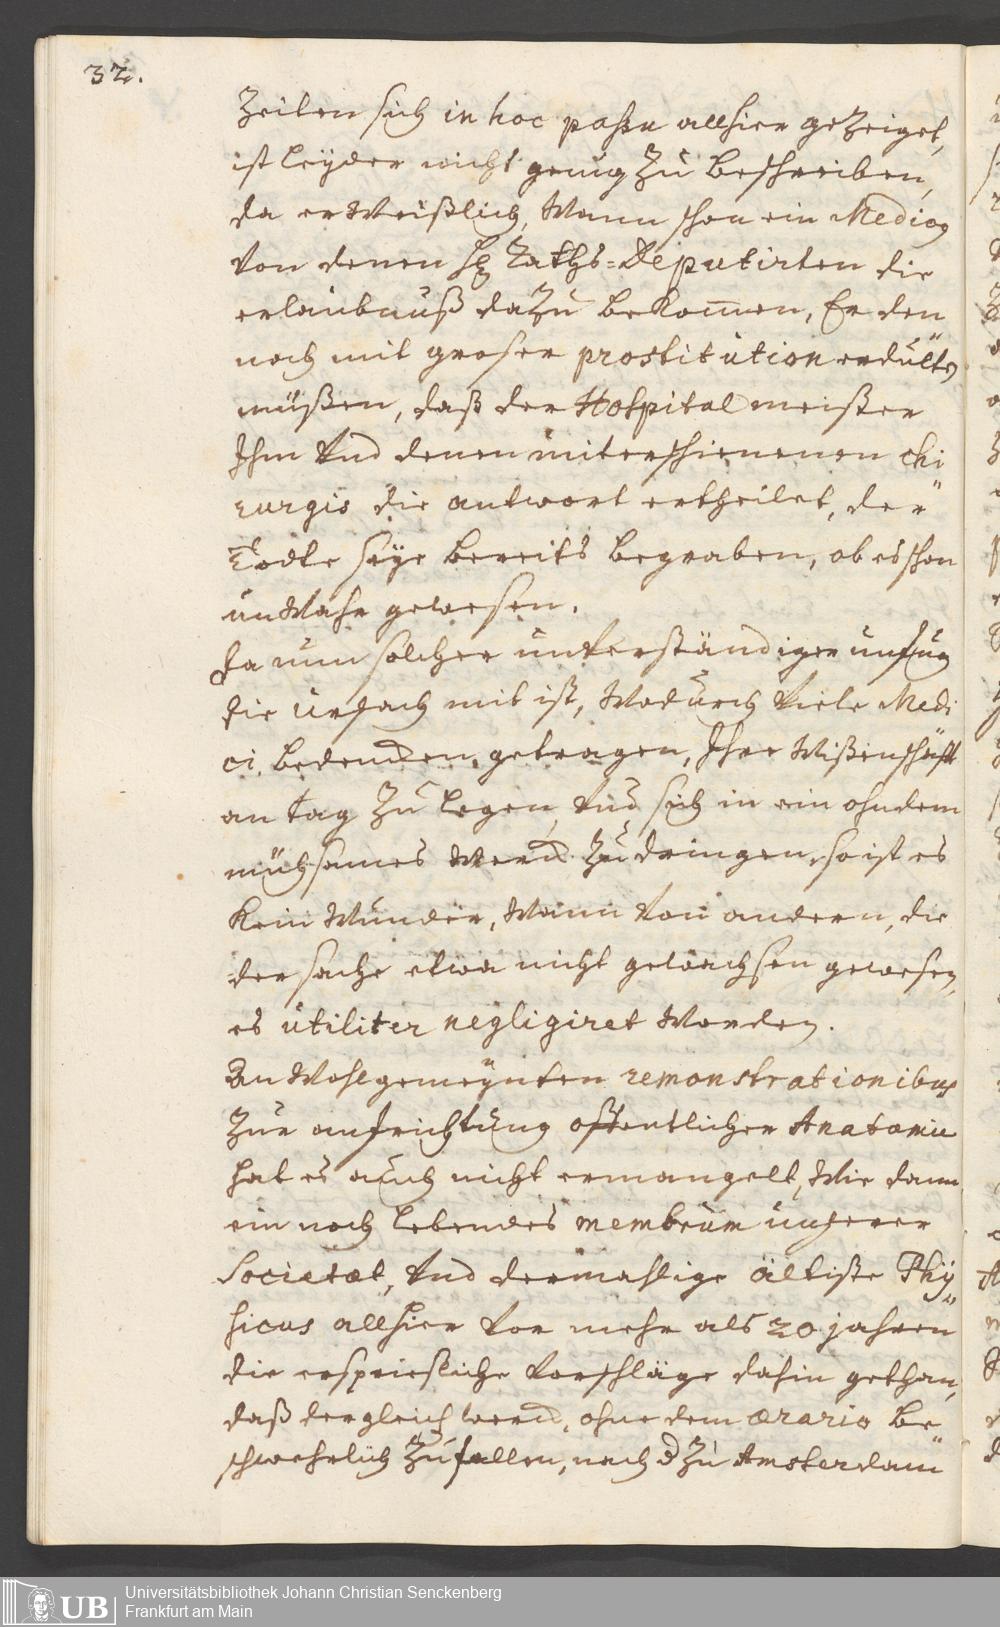 32.
Zeiten sich in hoc passu allhier gezeiget,
ist leyder nicht genug zu beschreiben,
da erweißlich, Wann schon ein Medicus
von denen HE. Raths=Deputirten die
erlaubnuß dazu bekom̄en, Er den
noch mit groser prostitution erdulten
müßen, daß der Hospitalmeister
Ihm und denen miterschienenen Chi
rurgis die antwort ertheilet, der"
Todte seye bereits begraben, ob es schon
unwahr gewesen.
Da nun solcher unverständiger unfug
die ursach mit ist, wodurch viele Medi
ci bedencken getragen, Ihre Wißenschafft
an tag zu legen, und sich in ein ohndem
mühsames werck zu dringen, so ist es
kein Wunder, Wann von andern, die
der sache etwa nicht gewachsen gewesen,
es utiliter negligiret worden.
An wohlgemeynten remonstrationibus
zur aufrichtung offentlicher Anatomie
hat es auch nicht ermangelt, Wie dann
ein noch lebendes membrum unserer
Societæt, und dermahlige ältiste Phy"
sicus allhier vor mehr als 20 jahren
die ersprießliche Vorschläge dahin gethan,
daß dergleich werck, ohne dem ærario be"
schwehrlich zu fallen, nach d zu Amsterdam